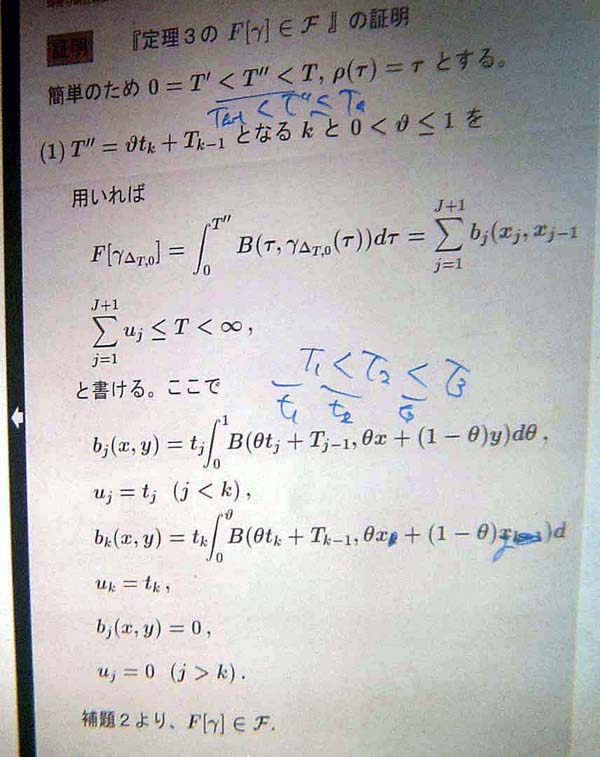 証明 『定理3の F[γ] ∈ 𝓕 』の証明
簡単のため 0 = T' < T'' < T, ρ(τ) = τ とする。
T_{k-1} < T'' ≤ T_k
(1) T'' = ϑt_k + T_{k-1} となる k と 0 < ϑ ≤ 1 を
用いれば
F[γ_{Δ_{T,0}}] = ∫_0^{T''} B(τ, γ_{Δ_{T,0}}(τ))dτ = ∑_{j=1}^{J+1} b_j(x_j, x_{j-1}
∑_{j=1}^{J+1} u_j ≤ T < ∞ ,
T_1 < T_2 < T_3
と書ける。ここで
t_1 t_2
b_j(x, y) = t_j ∫_0^1 B(θt_j + T_{j-1}, θx + (1 − θ)y)dθ ,
u_j = t_j (j < k) ,
b_k(x, y) = t_k ∫_0^ϑ B(θt_k + T_{k-1}, θx + (1 − θ)y)d
u_k = t_k ,
b_j(x, y) = 0 ,
u_j = 0 (j > k) .
補題2より、F[γ] ∈ 𝓕.